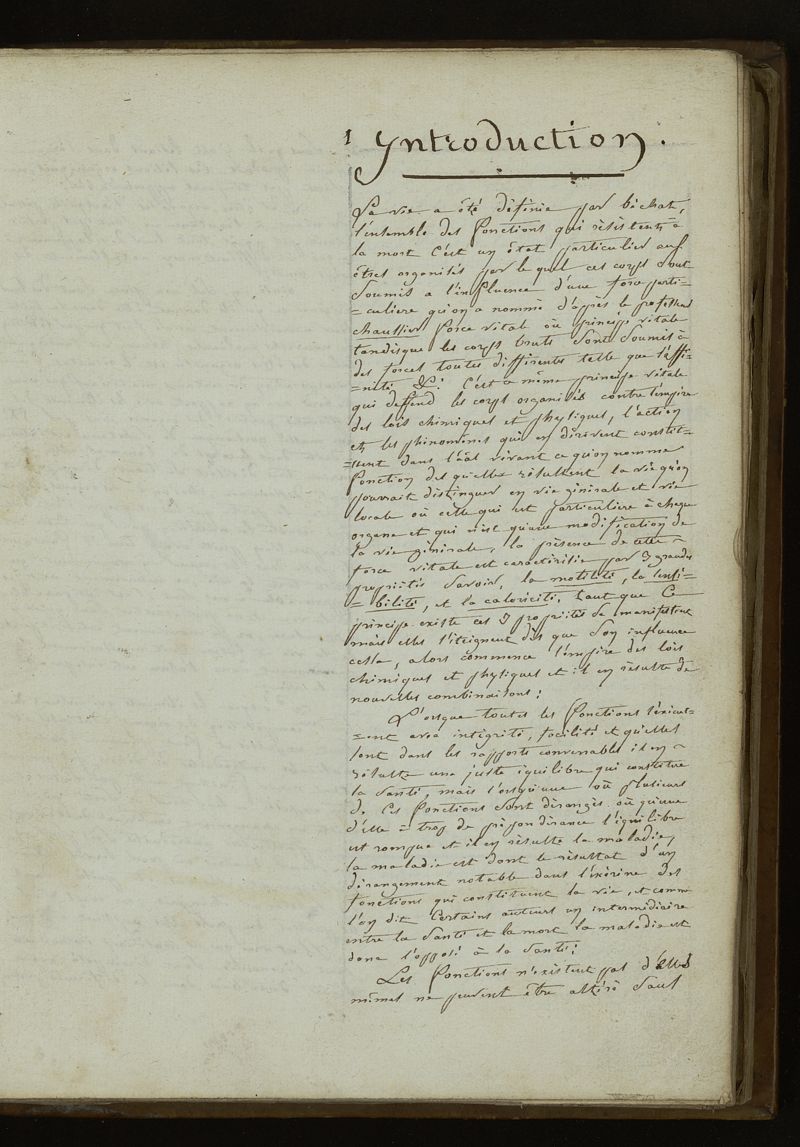 1 Introduction.
La vie a été définie par bichat,
l'ensemble des fonctions qui résistent à
la mort C'est un état particulier aux
êtres organisés par le quel ces corps sont
Soumis a l'influence d'une force parti-
=culiere qu'on a nommé d'après le professeur
chaussier force vital où principe vitale
tandisque les corps bruts Sont Soumis à
des forces toutes differentes telle que l'affi-
=nité &c: C'est ce même principe vitale
qui deffend les corps organisés contre l'empire
des lois chimiques et physiques, l'action
et les phénomènes qui en dérivent constit-
=uent dans l'état vivant ce qu'on nomme
fonction des quelles résultent la vie qu'on
pourrait distinguer en vie générale et vie
locale où celle qui est particuliere à chaque
organe et qui n'est qu'une modification de
la vie générale, la présence de cette
force vitale est caractérisée par 3 grandes
propriétés Savoir, la motilité, la sensi-
=bilité, et la caloricité, tant que Ce
principe existe ces 3 propriétés Se manifestent
mais elles s'éteignent dès que Son influence
cesse, alors commence l'empire des lois
chimiques et physiques et il en résulte de
nouvelles combinaisons:
L'orsque toutes les fonctions s'éxécut-
=ent avec intégrité, facilité et qu'elles
sont dans les rapports convenables il en
résulte une juste équilibre qui constitue
la Santé, mais l'orsqu'une où plusieurs
de Ces fonctions Sont dérangés où qu'une
d'elle à trop de prépondérance l'équilibre
est rompue et il en résulte la maladie,
la maladie est dont le résultat d'un
dérangement notable dans l'éxércice des
fonctions qui constituent la vie, et comme
l'on dit Certains auteurs un intermédiaire
entre la Santé et la mort la maladie est
donc l'opposé à la Santé:
Les fonctions n'existent pas d'elles
mêmes ne peuvent être altéré Sans